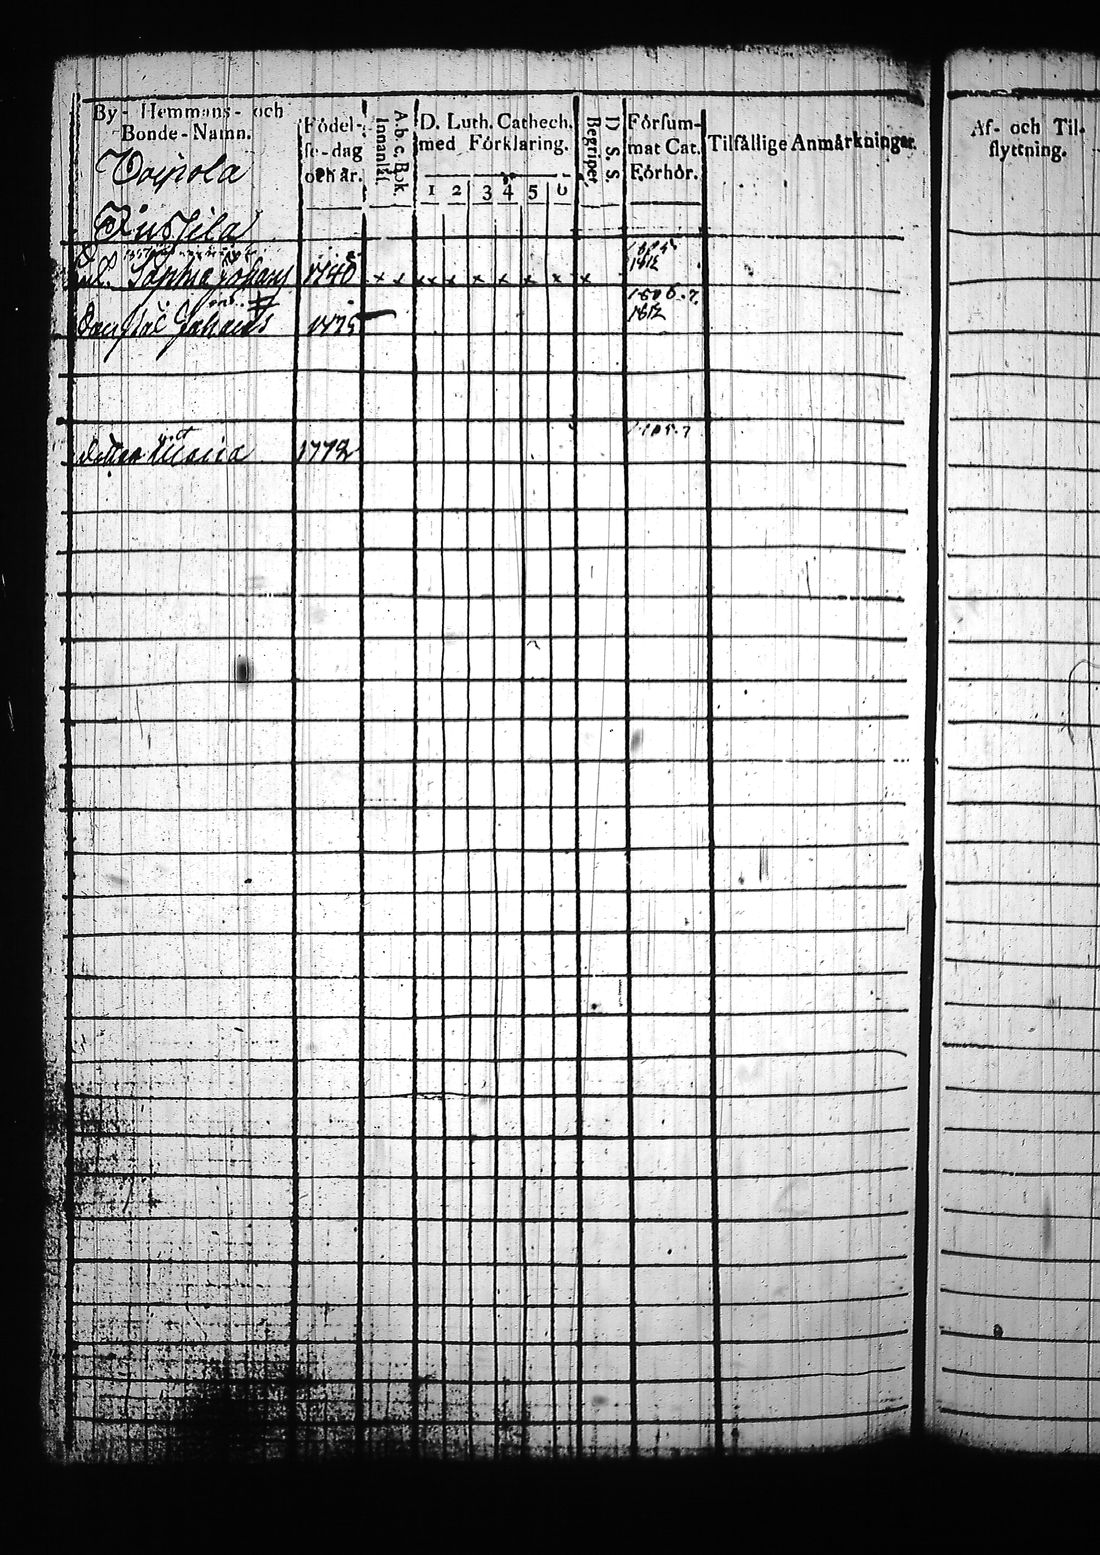 By- Hemmans- och
Bonde-Namn.
Födel-
se-dag
och år.
A.b.c.Bok.
Innanläs
D. Luth. Cathech.
med Förklaring.
1 2 3 4 5 6
Begriper
D. S. S.
Försum-
mat Cat.
Förhör.
Tilfällige Anmärkningar.
Af- och Til-
flyttning.
Voipola
Jussila
Sophia Johans 1740 x x x x x x x x x 1805 1812
1775 1806.7 1812
dottren Maria 1772 1805.7